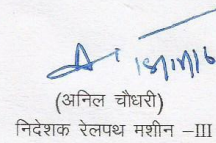 (अनिल चौधरी)
निदेशक रेलपथ मशीन –III